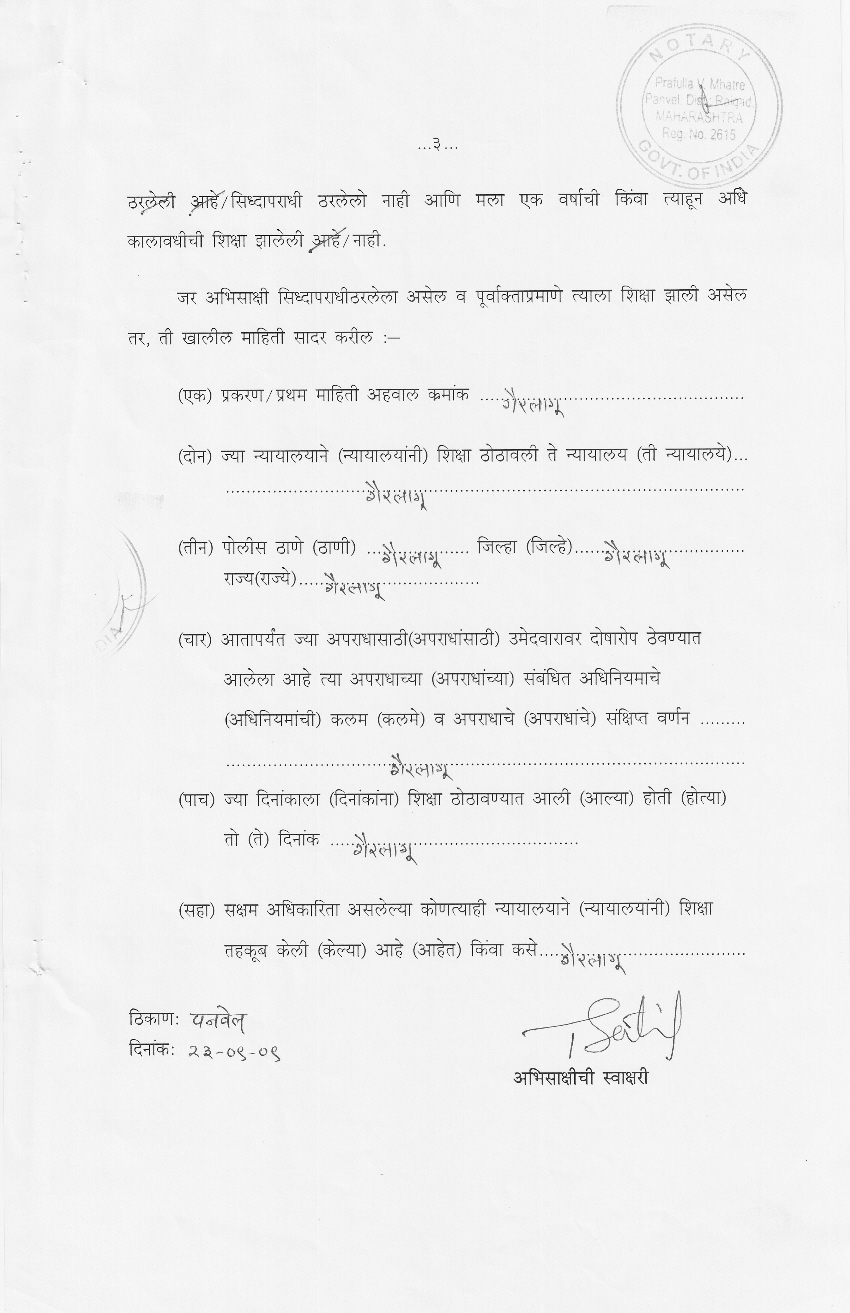 NOTARY
Prafulla V. Mhatre
Panvel, Dist. Raigad
MAHARASHTRA
Reg. No. 2615
GOVT. OF INDIA
...३...
ठरलेली आहे/सिध्दापराधी ठरलेलो नाही आणि मला एक वर्षाची किंवा त्याहून अधि
कालावधीची शिक्षा झालेली आहे/नाही.
जर अभिसाक्षी सिध्दापराधीठरलेला असेल व पूर्वाक्ताप्रमाणे त्याला शिक्षा झाली असेल
तर, ती खालील माहिती सादर करील :–
(एक) प्रकरण/प्रथम माहिती अहवाल क्रमांक .....गैरलागू.....
(दोन) ज्या न्यायालयाने (न्यायालयांनी) शिक्षा ठोठावली ते न्यायालय (ती न्यायालये)...
.....गैरलागू.....
(तीन) पोलीस ठाणे (ठाणी) ...गैरलागू...... जिल्हा (जिल्हे).....गैरलागू.....
राज्य(राज्ये).....गैरलागू.....
(चार) आतापर्यंत ज्या अपराधासाठी(अपराधांसाठी) उमेदवारावर दोषारोप ठेवण्यात
आलेला आहे त्या अपराधाच्या (अपराधांच्या) संबंधित अधिनियमाचे
(अधिनियमांची) कलम (कलमे) व अपराधाचे (अपराधांचे) संक्षिप्त वर्णन .........
.....गैरलागू.....
(पाच) ज्या दिनांकाला (दिनांकांना) शिक्षा ठोठावण्यात आली (आल्या) होती (होत्या)
तो (ते) दिनांक .....गैरलागू.....
(सहा) सक्षम अधिकारिता असलेल्या कोणत्याही न्यायालयाने (न्यायालयांनी) शिक्षा
तहकूब केली (केल्या) आहे (आहेत) किंवा कसे....गैरलागू.....
ठिकाण: पनवेल
दिनांक: २३-०९-०९
अभिसाक्षीची स्वाक्षरी